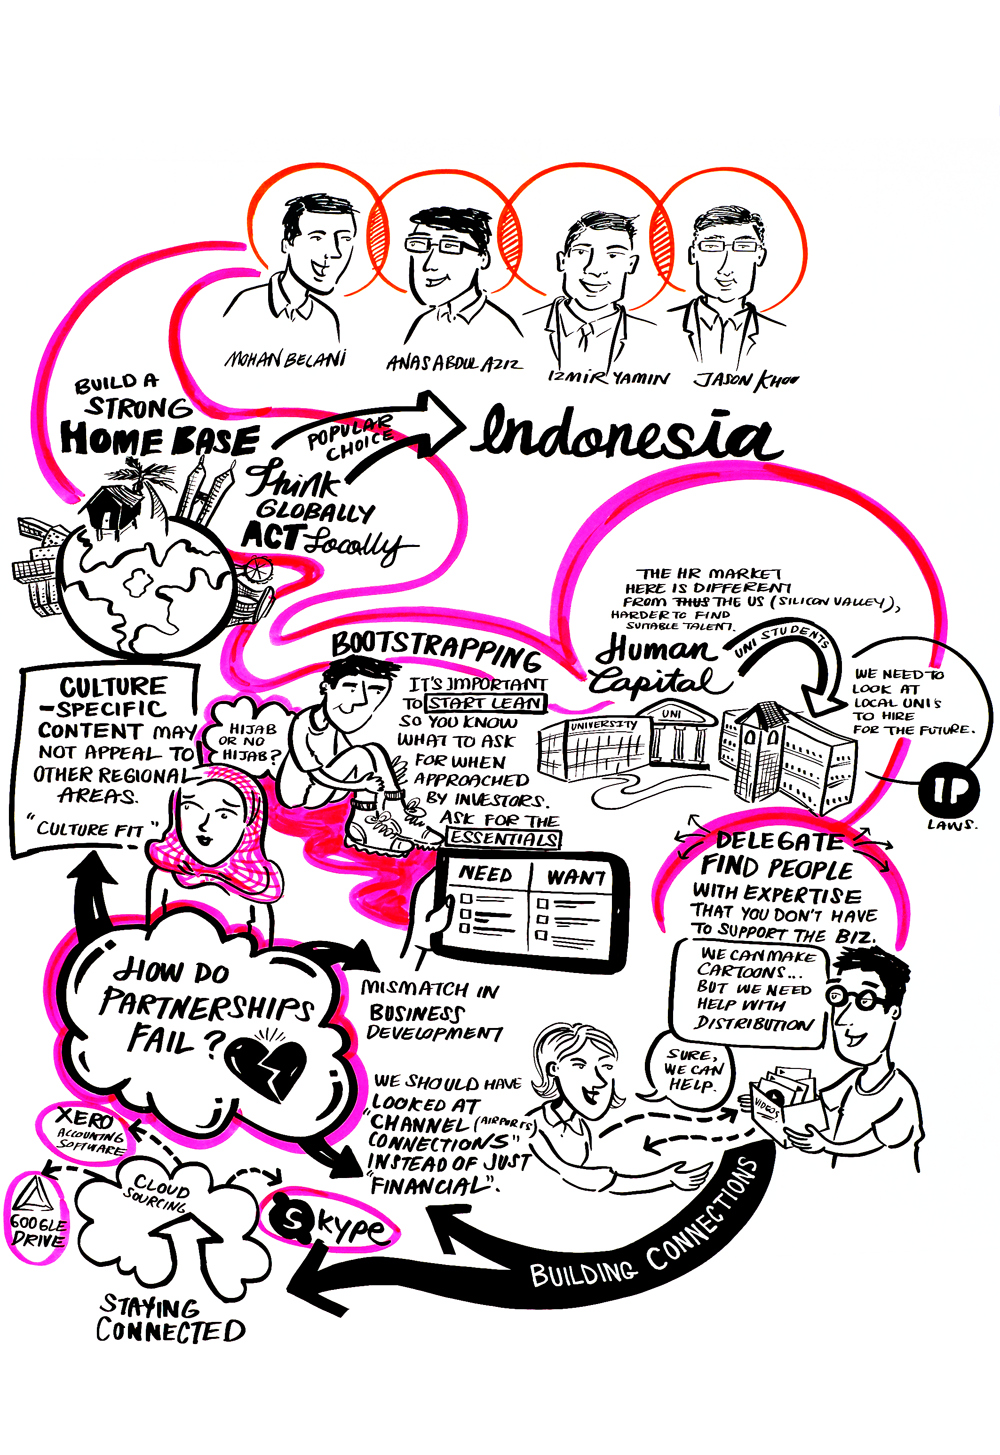 MOHAN BELANI
ANAS ABDUL AZIZ
IZMIR YAMIN
JASON KHOO
BUILD A
STRONG
HOME BASE
POPULAR
CHOICE
Indonesia
Think
GLOBALLY
ACT Locally
THE HR MARKET
HERE IS DIFFERENT
FROM THUS THE US (SILICON VALLEY),
HARDER TO FIND
SUITABLE TALENT.
Human
Capital
UNI STUDENTS
WE NEED TO
LOOK AT
LOCAL UNI'S
TO HIRE
FOR THE FUTURE.
IP
LAWS.
UNIVERSITY
UNI
BOOTSTRAPPING
IT'S IMPORTANT
TO START LEAN
SO YOU KNOW
WHAT TO ASK
FOR WHEN
APPROACHED
BY INVESTORS.
ASK FOR THE
ESSENTIALS
NEED
WANT
CULTURE
-SPECIFIC
CONTENT MAY
NOT APPEAL TO
OTHER REGIONAL
AREAS.
"CULTURE FIT"
HIJAB
OR NO
HIJAB?
DELEGATE
FIND PEOPLE
WITH EXPERTISE
THAT YOU DON'T HAVE
TO SUPPORT THE BIZ.
WE CAN MAKE
CARTOONS...
BUT WE NEED
HELP WITH
DISTRIBUTION
SURE,
WE CAN
HELP.
VIDEOS
HOW DO
PARTNERSHIPS
FAIL?
MISMATCH IN
BUSINESS
DEVELOPMENT
WE SHOULD HAVE
LOOKED AT
"CHANNEL (AIRPORTS)
CONNECTIONS"
INSTEAD OF JUST
"FINANCIAL".
BUILDING CONNECTIONS
XERO
ACCOUNTING
SOFTWARE
GOOGLE
DRIVE
CLOUD
SOURCING
Skype
STAYING
CONNECTED